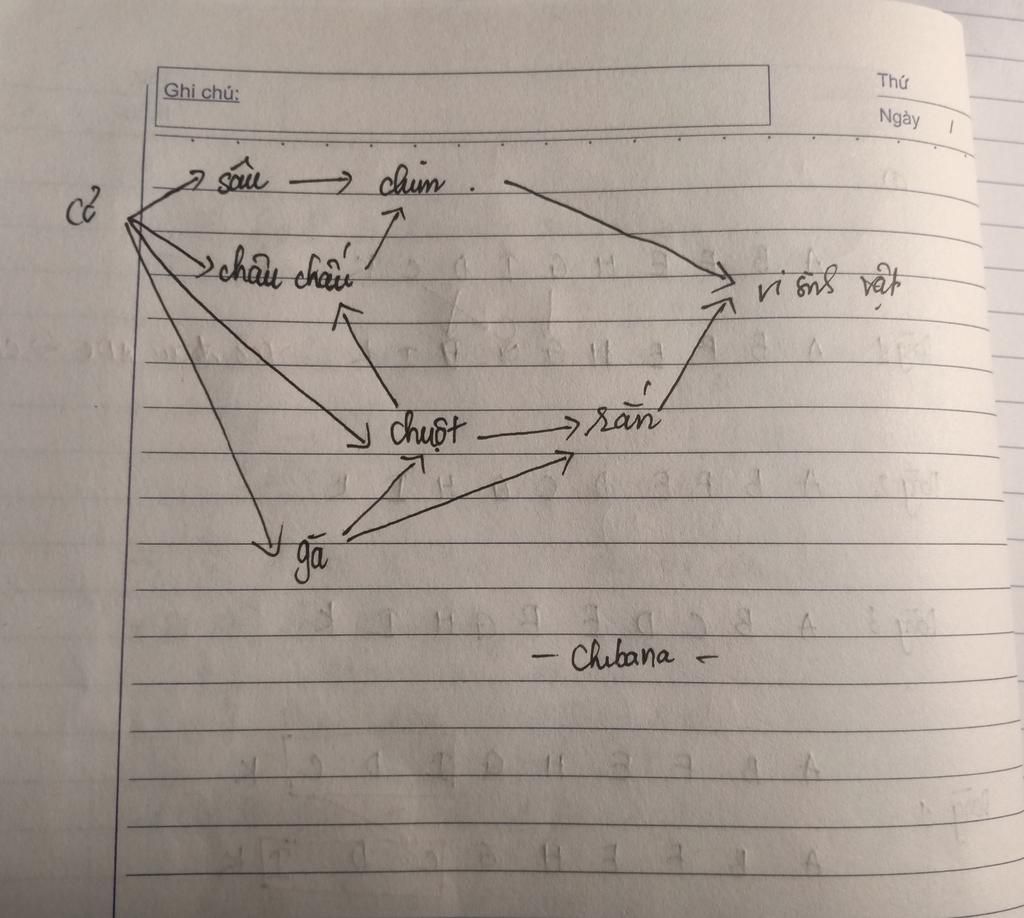 Ghi chú:
Thứ
Ngày /
sâu → chim .
cỏ
châu chấu
vi sinh vật
chuột → rắn
gà
- Chibana -